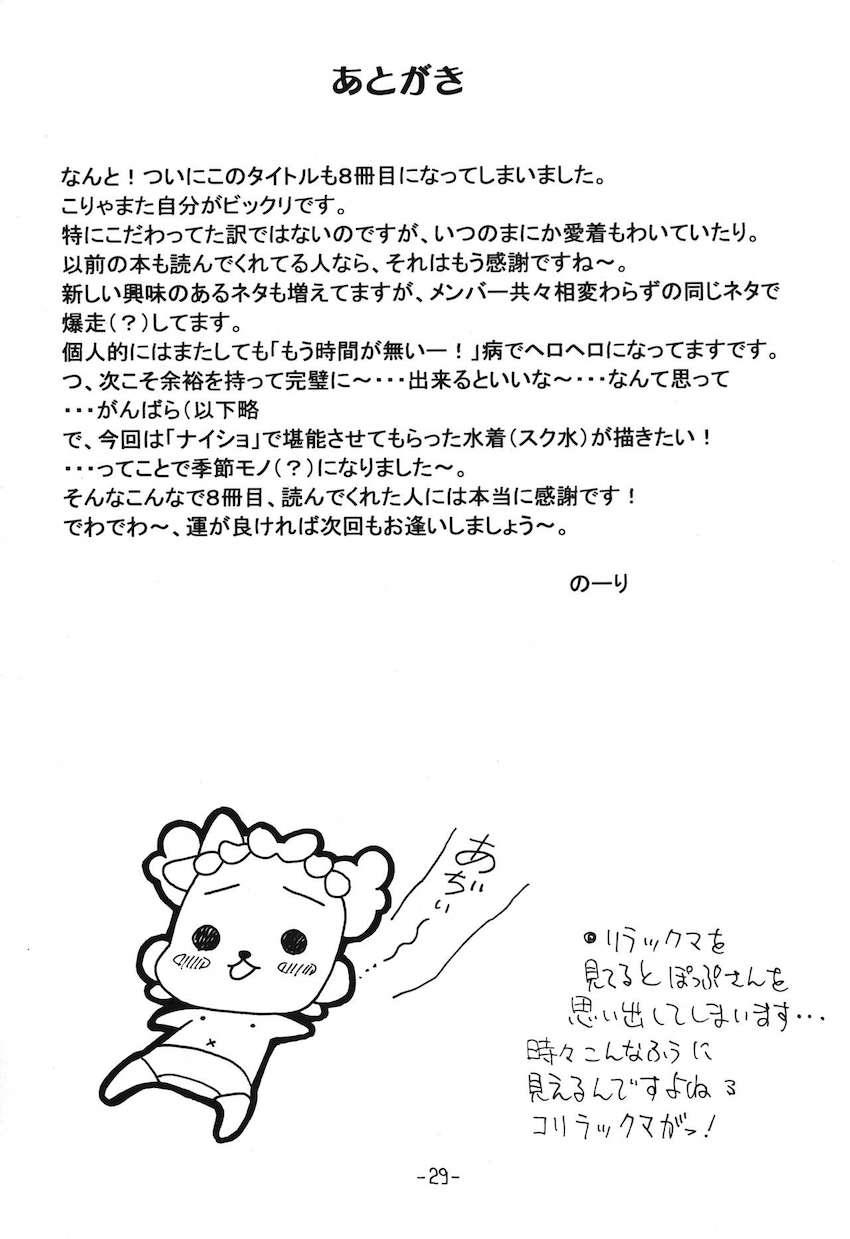 あとがき
なんと！ついにこのタイトルも８冊目になってしまいました。
こりゃまた自分がビックリです。
特にこだわってた訳ではないのですが、いつのまにか愛着もわいていたり。
以前の本も読んでくれてる人なら、それはもう感謝ですね～。
新しい興味のあるネタも増えてますが、メンバー共々相変わらずの同じネタで
爆走（？）してます。
個人的にはまたしても「もう時間が無いー！」病でヘロヘロになってますです。
つ、次こそ余裕を持って完璧に～・・・出来るといいな～・・・なんて思って
・・・がんばら（以下略
で、今回は「ナイショ」で堪能させてもらった水着（スク水）が描きたい！
・・・ってことで季節モノ（？）になりました～。
そんなこんなで８冊目、読んでくれた人には本当に感謝です！
でわでわ～、運が良ければ次回もお逢いしましょう～。
のーり
あぢぃ
リラックマを
見てるとぽっぷさんを
思い出してしまいます・・・
時々こんなふうに
見えるんですよねぇ
コリラックマがっ！
-29-